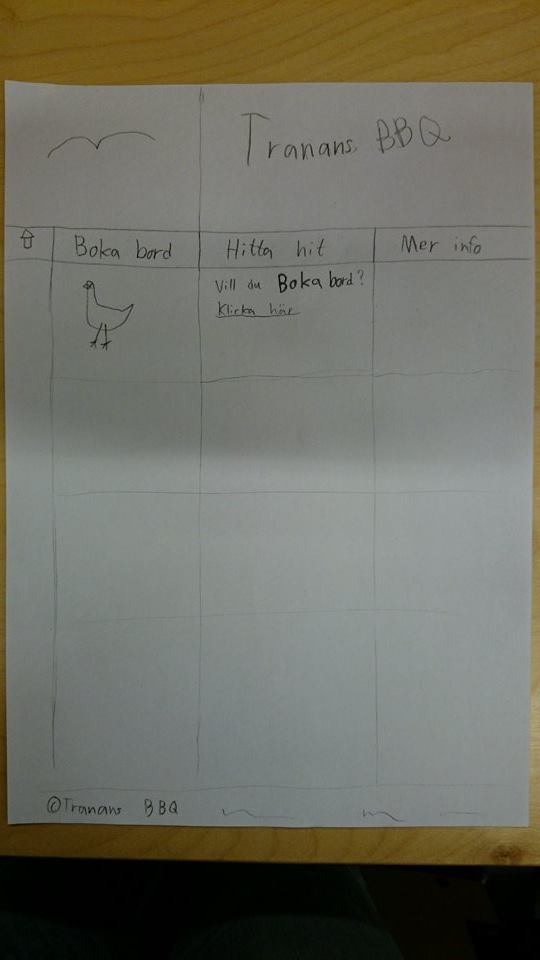 Tranans BBQ
Boka bord
Hitta hit
Mer info
Vill du Boka bord?
Klicka här
©Tranans BBQ